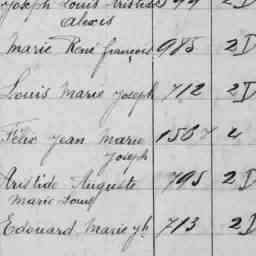 Joseph Louis Aristide
Alexis
Marie René françois 985 2D
Louis Marie Joseph 712 2D
Félix Jean Marie 1567 4
Joseph
Aristide Auguste 795 2D
Marie Louis
Edouard Marie Jh 713 2D